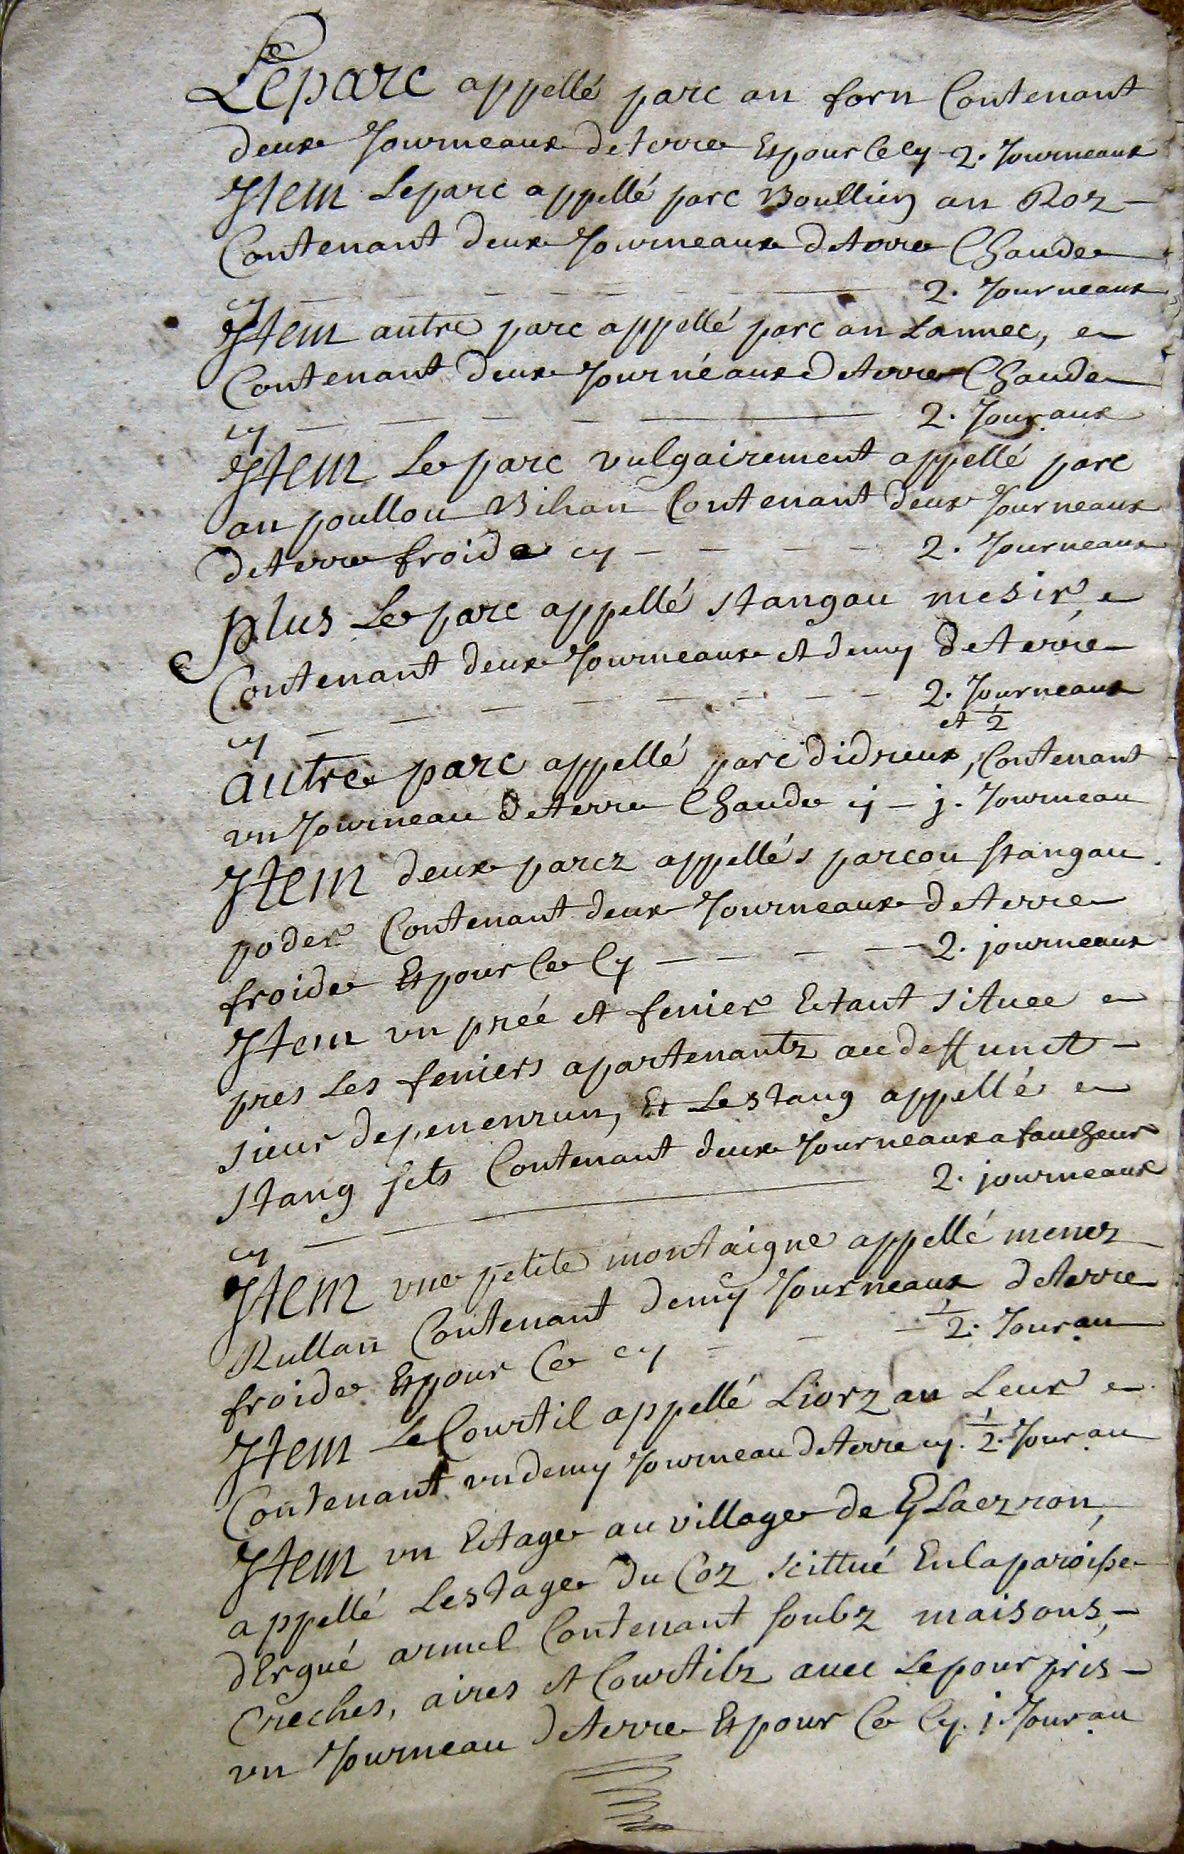 Le parc appellé parc an forn Contenant
deux Journeaux de terre Et pour Ce cy 2. Journeaux
Item Le parc appellé parc Boullien an Roz —
Contenant deux Journeaux de terre Chaude
cy — — — — 2. Journeaux
Item autre parc appellé parc an Lannec,
Contenant deux Journéaux de terre Chaude
cy — — — 2. Jouraux
Item Le parc vulgairement appellé parc
an poullou Bihan Contenant deux Journeaux
de terre froide cy — — — — 2. Journeaux
plus Le parc appellé stangau mesir
Contenant deux Journeaux et demy de terre
cy — — — — — — 2. Journeaux
et ½
autre parc appellé parc didreux, Contenant
vn Journeau de terre Chaude cj — j. Journeau
Item deux parcz appellés parcou stangau
poder Contenant deux Journeaux de terre
froide Et pour Ce Cy — — — — 2. journeaux
Item vn préé et fenier Estant situee
pres Les feniers apartenantz au deffunct —
sieur de penenrun, Et Lestang appellé
stang Contenant deux Journeaux a faucheur
cy — — 2. journeaux
Item vne petite montaigne appellé menez
Rullan Contenant demy Journeaux de terre
froide Et pour Ce cy — — — ½. Jourau
Item Le Courtil appellé Liorz an Leur
Contenant vn demy Journeau de terre cy. ½. Jourau
Item vn Estage au village de Laezron,
appellé Lestage du Coz scittué En la paroisse
dErgué armel Contenant soubz maisons, —
Creches, aires et Courtilz auec Le pourpris —
vn Journeau de terre Et pour Ce Cy. j. Jourau